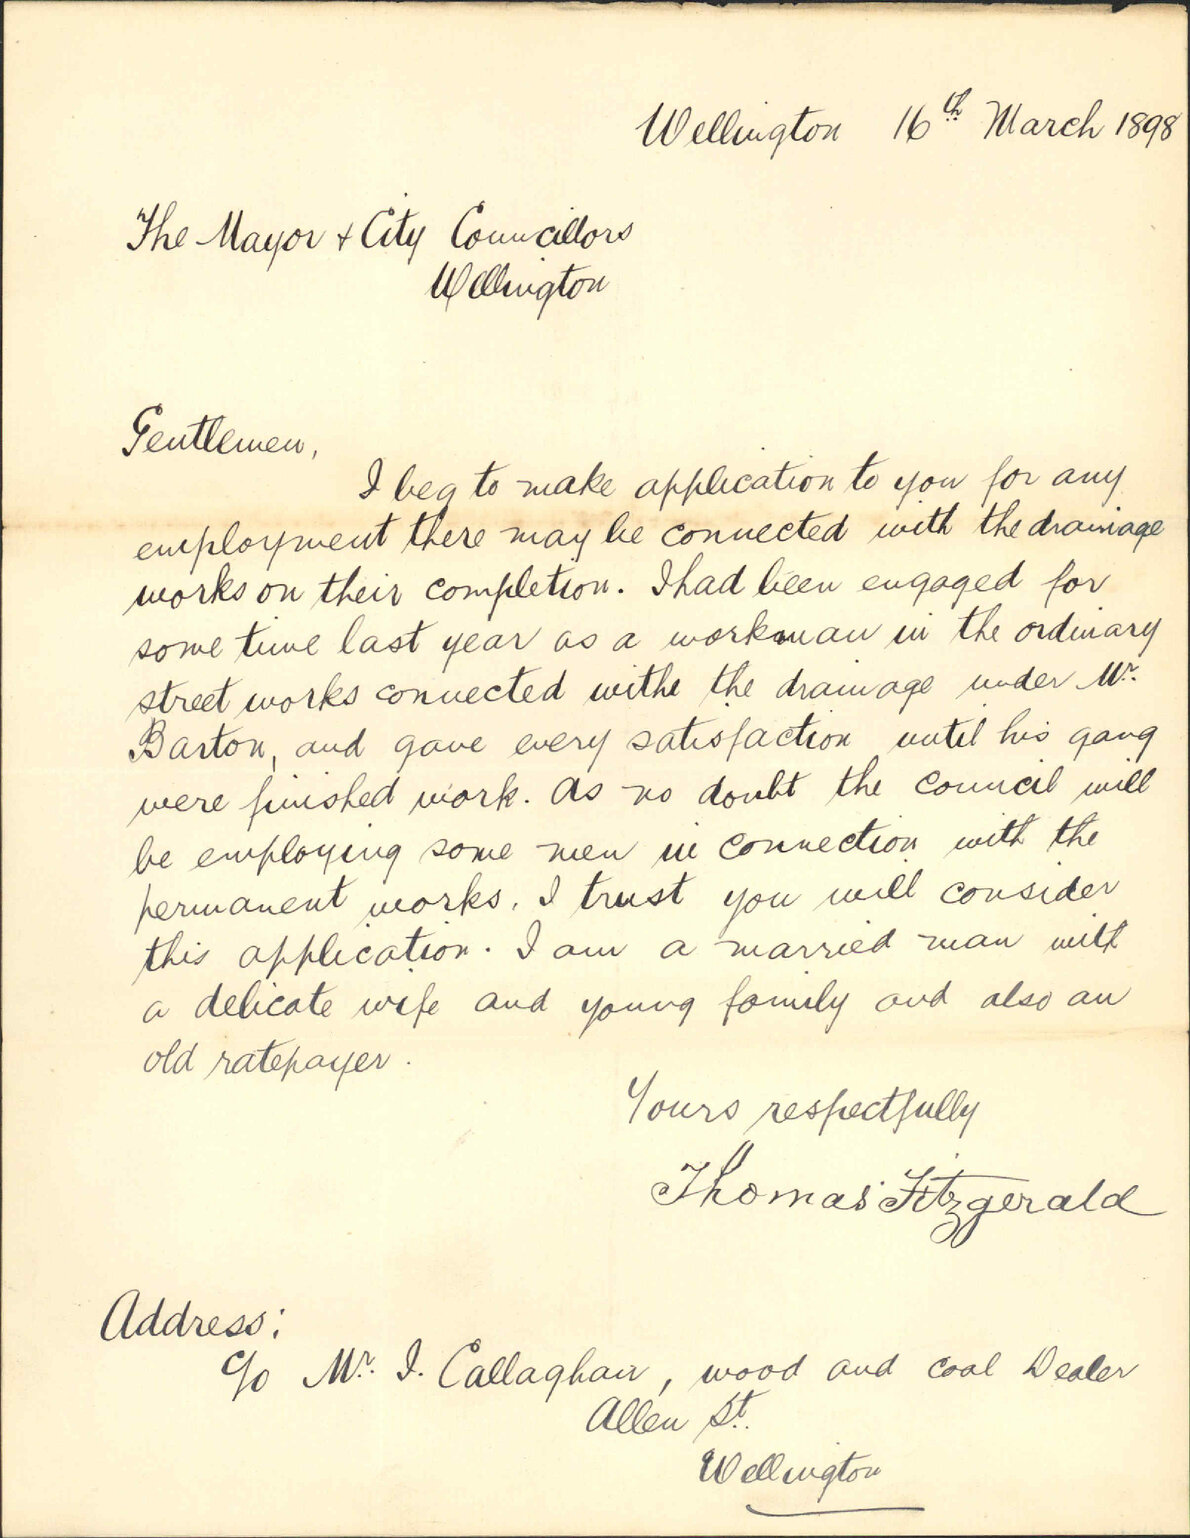 Wellington 16th March 1898
The Mayor + City Councillors
Wellington
Gentlemen,
I beg to make application to you for any
employment there may be connected with the drainage
works on their completion. I had been engaged for
some time last year as a workman in the ordinary
street works connected withe the drainage under Mr.
Barton, and gave every satisfaction until his gang
were finished work. As no doubt the council will
be employing some men in connection with the
permanent works, I trust you will consider
this application. I am a married man with
a delicate wife and young family and also an
old ratepayer.
Yours respectfully
Thomas Fitzgerald
Address:
c/o Mr. J. Callaghan, wood and coal Dealer
Allen St.
Wellington